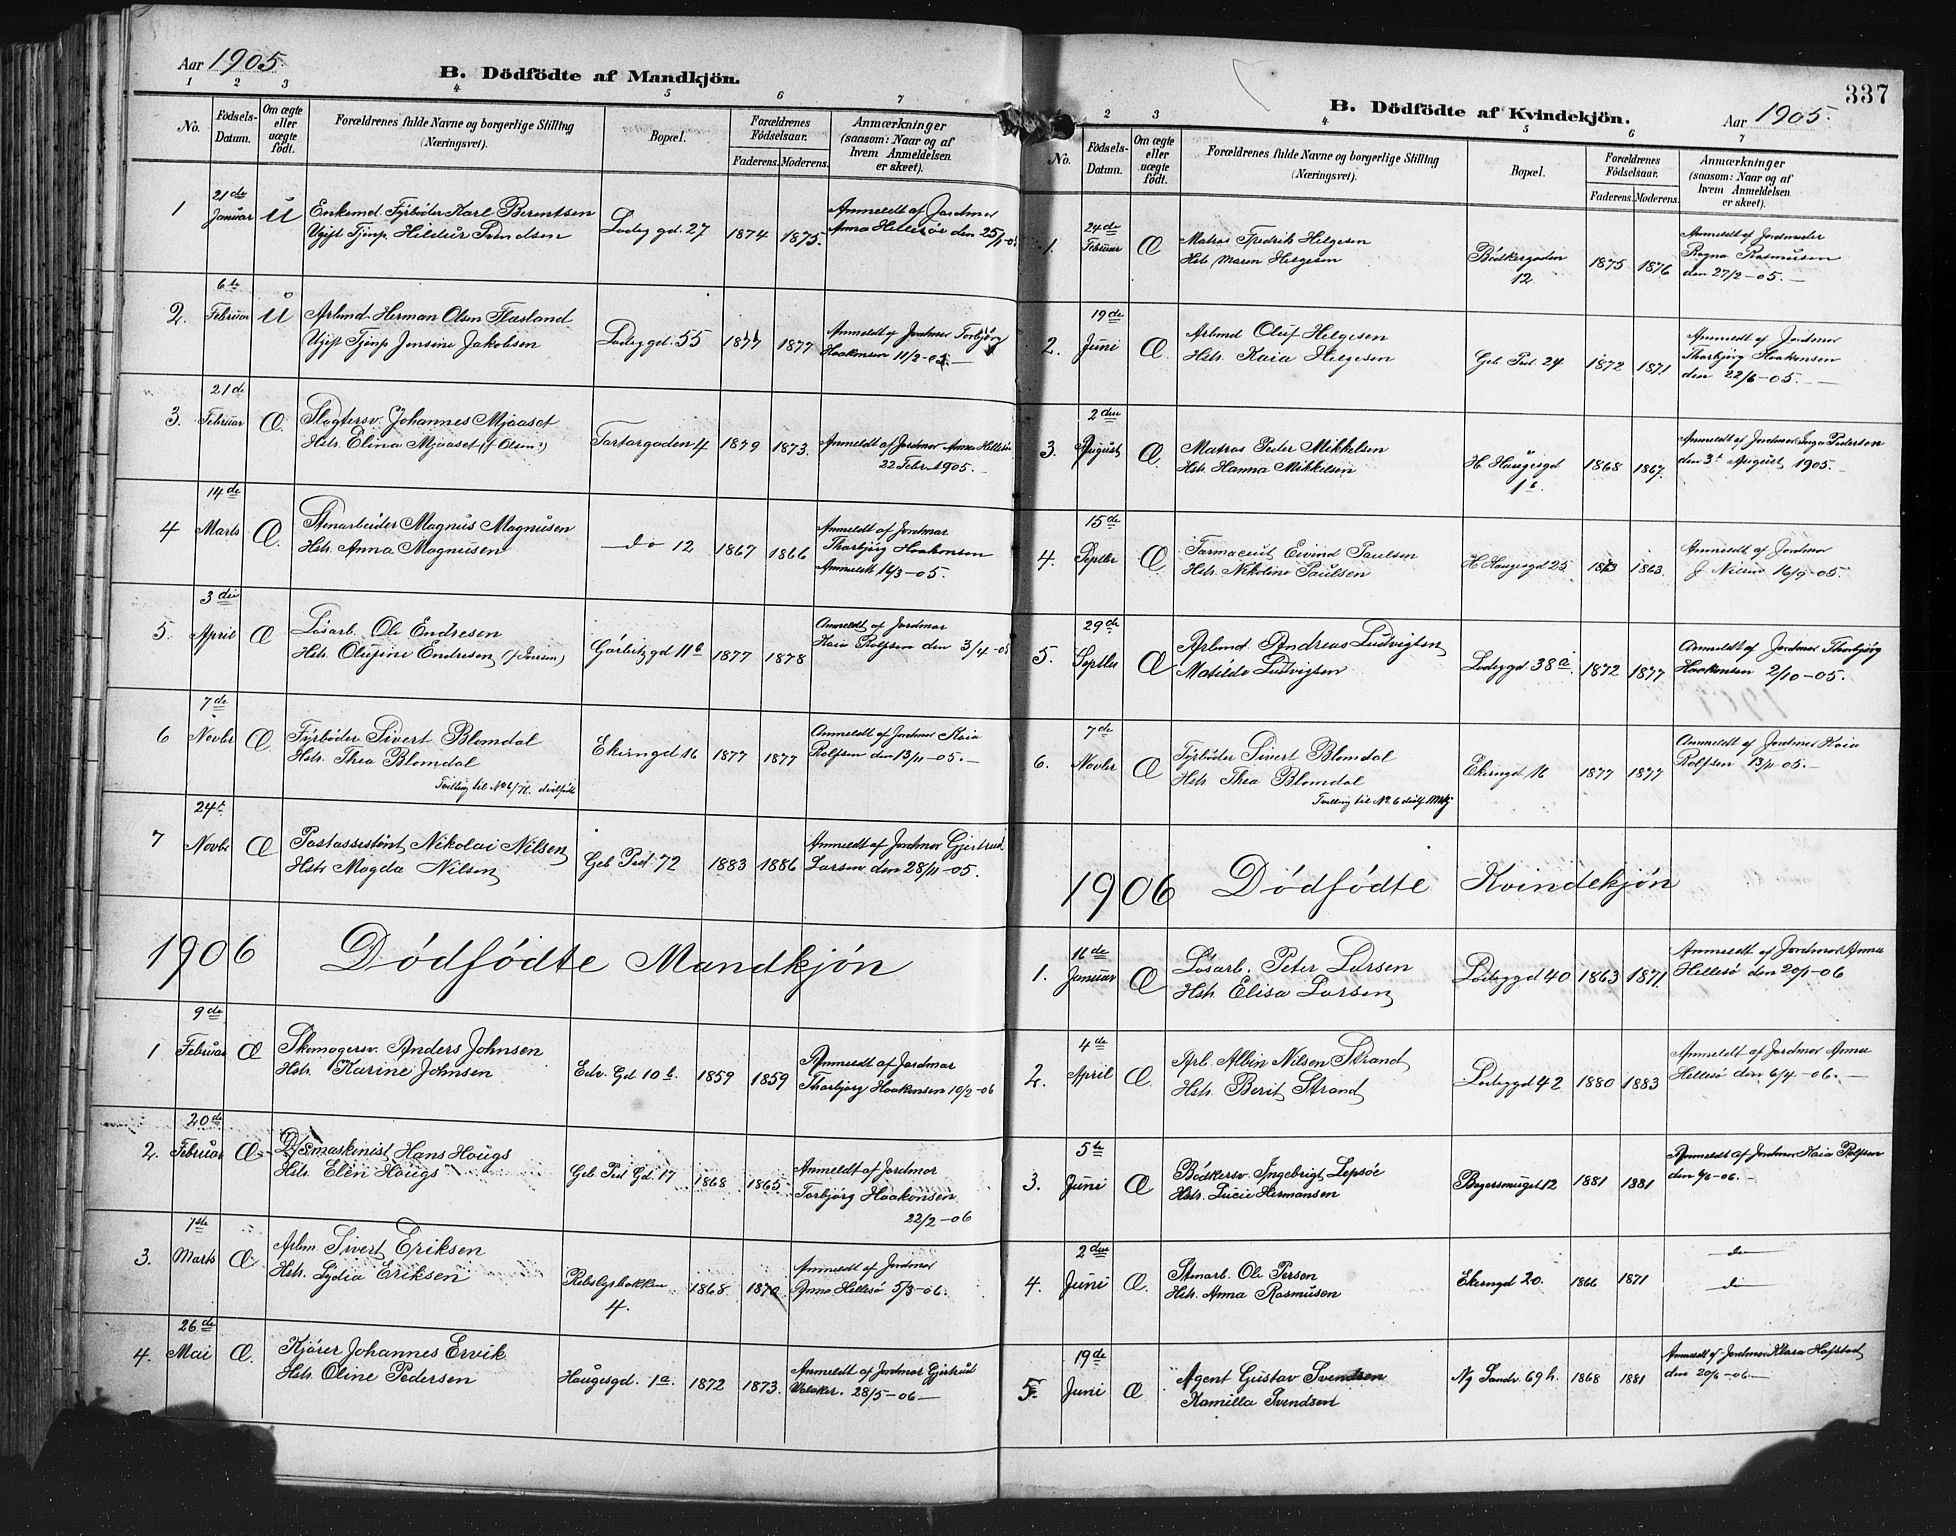 Aar 1905.
B. Dödfödte af Mandkjön.
1 2 3 4 5 6 7
No. Födsels-Datum. Om ægte eller uægte födt. Forældrenes fulde Navne og borgerlige Stilling (Næringsvei). Bopæl. Forældrenes Födselsaar. Faderens. Moderens. Anmærkninger (saasom: Naar og af hvem Anmeldelsen er skeet).
1 21de Januar U Enkemd. Fyrbøder Karl Berentsen
Ugift Tjenp. Hildur Svendsen Ladeg gd. 27 1874 1875. Anmeldt af Jordmor
Anna Hellesöe den 25/1-05
2. 6te Februar U Arbmd. Herman Olsen Flesland
Ugift Tjenp Jensine Jakobsen Ladeg gd. 55 1877 1877 Anmeldt af Jordmor Torbjörg
Haakonsen 11/2-05.
3. 21de Februar Æ. Slagtersv. Johannes Mjaaset
Hstr. Elina Mjaaset (f. Olsen) Tartargaden 4 1879 1873. Anmeldt af Jordmor Anna Hellesöe
22 Febr. 1905.
4 14de Marts Æ. Stenarbeider Magnus Magnusen
Hstr. Anna Magnusen do 12 1867 1866 Anmeldt af Jordmor
Thorbjörg Haakonsen
Anmeldt 16/3-05.
5. 3die April Æ Lösarb. Ole Endresen
Hstr. Olufine Endresen Görbitz gd 11b 1877 1878 Anmeldt af Jordmor
Kaia Rolfsen den 3/4-05
6 7de Novbr Æ Fyrbøder Sivert Blomdal
Hstr. Thea Blomdal
Tvilling til No 6/ dødfødt Ekerngd 16 1877 1877 Anmeldt af Jordmor Kaia
Rolfsen den 13/11-05.
7 24t Novbr Æ Postassistent Nikolai Nilsen
Hstr Magda Nilsen Geb Pust. 72 1883 1886 Anmeldt af Jordmor Gjertrud
Larsen den 28/11-05.
1906 Dödfödte Mandkjön
1 9de Februar Æ Skomagersv. Anders Johnsen
Hstr. Karine Johnsen Edv. Gd 10b. 1859 1859 Anmeldt af Jordmor
Thorbjörg Haakonsen 10/2-06
2. 20de Februar Æ Hans Hougs
Hstr. Elen Hougs Geb Pust Gd. 17 1868 1865 Anmeldt af Jordmor
Torbjörg Haakonsen
22/2-06
3. 7de Marts Æ Arbm Sivert Eriksen
Hstr. Lydia Eriksen Rebslgsbakken
4. 1868 1870 Anmeldt af Jordmor
Anna Hellesö 5/3-06.
4. 26de Mai Æ. Kjörer Johannes Ervik
Hstr. Oline Pedersen Haugesgd. 1a. 1872 1873. Anmeldt af Jordmor Gjertrud
28/5-06
337
B. Dödfödte af Kvindekjön.
Aar 1905.
2 3 4 5 6 7
No. Födsels-Datum. Om ægte eller uægte födt. Forældrenes fulde Navne og borgerlige Stilling (Næringsvei). Bopæl. Forældrenes Födselsaar. Faderens. Moderens. Anmærkninger (saasom: Naar og af hvem Anmeldelsen er skeet).
1. 24de Februar Æ Matros Fredrik Helgesen
Hstr Maren Helgesen Bödkergaden
12. 1875 1876 Anmeldt af Jordmoder
Ragna Rasmusen
den 27/2-05.
2. 19de Juni Æ Arbmd Oluf Helgesen
Hstr. Kaia Helgesen Geb. Pust. 24 1872 1871 Anmeldt af Jordmor
Thorbjörg Haakonsen
den 22/6-05.
3. 2den August Æ. Matros Peder Mikkelsen
Hstr. Hanna Mikkelsen H Haugesgd
1b. 1868 1867. Anmeldt af Jordmor Inga Pedersen
den 3t August 1905.
4. 15de Septbr Æ Farmaceut Eivind Paulsen
Hstr. Nikoline Paulsen H Haugesgd 25 1863 1863. Anmeldt af Jordmor
J Nilsen 16/9-05.
5. 29de Septbr Æ Arbmd Andreas Ludvigsen
Matilde Ludvigsen Ladeg gd 38a. 1872 1877 Anmeldt af Jordmor Thorbjörg
Haakonsen 2/10-05.
6. 7de Novbr Æ Fyrbøder Sivert Blomdal
Hstr. Thea Blomdal
Tvilling til No 6 dødf. Mkj Ekerngd 16 1877 1877 Anmeldt af Jordmor Kaia
Rolfsen 13/11-05.
1906 Dödfödte Kvindekjön
1. 16de Januar Æ Lösarb. Peter Larsen
Hstr. Elisa Larsen Ladeg gd 40 1863 1871 Anmeldt af Jordmor Anna
Hellesö den 20/1-06
2. 4de April Æ. Arb. Albin Nilsen Strand
Hstr. Berit Strand Ladeg gd 42 1880 1883 Anmeldt af Jordmor Anna
Hellesö den 6/4-06.
3. 5te Juni Æ Bödkersv. Ingebrigt Lepsöe
Hstr. Lucie Hermansen Bagersmuget 12 1881 1881 Anmeldt af Jordmor Kaia Rolfsen
den 9/6-06.
4. 2den Juni Æ. Stenarb. Ole Persen
Hstr. Anna Rasmusen Ekerngd 20. 1866 1871 do
do
5. 19de Juni Æ Agent Gustav Svendsen
Kamilla Svendsen Ny Sandv. 69 h. 1868 1881 Anmeldt af Jordmor Klara Hofstad
den 20/6-06